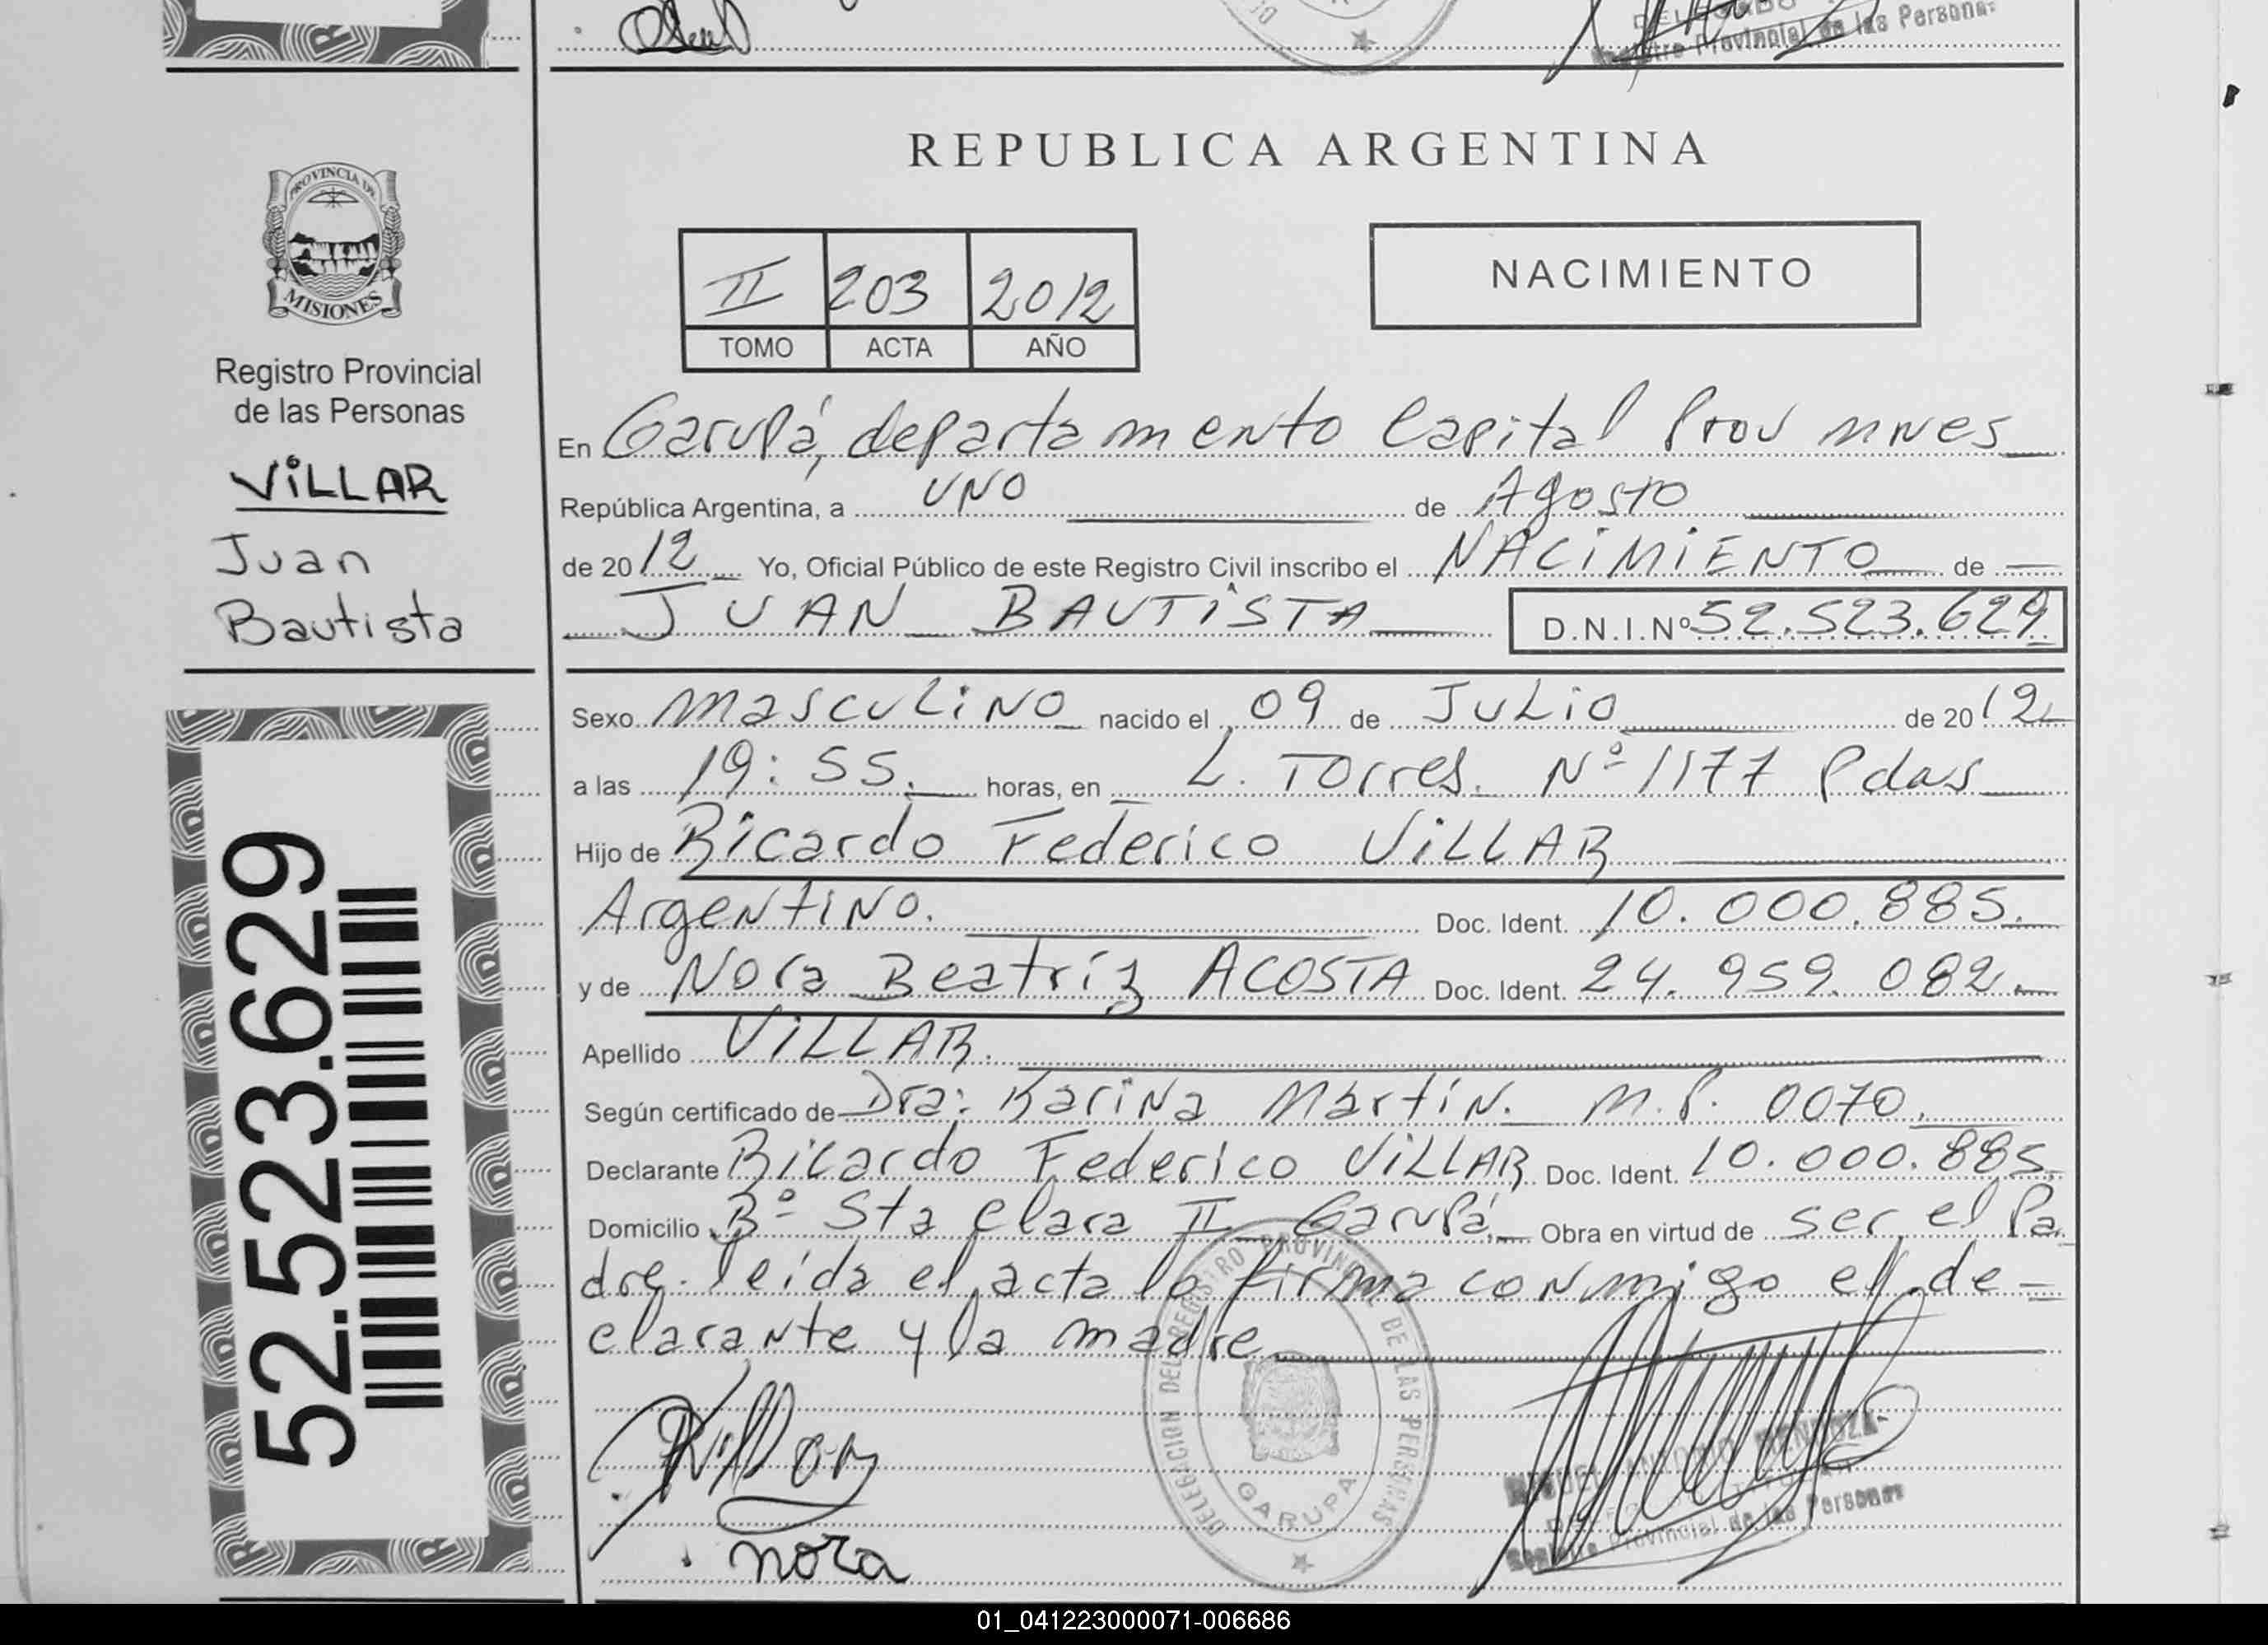 DELEGADO
Registro Provincial de las Personas
REPUBLICA ARGENTINA
PROVINCIA DE
MISIONES
Registro Provincial
de las Personas
VILLAR
Juan
Bautista
II 203 2012
TOMO ACTA AÑO
NACIMIENTO
En Garupá, departamento Capital Prov mnes
República Argentina, a UNO de Agosto
de 2012 Yo, Oficial Público de este Registro Civil inscribo el NACIMIENTO de
JUAN BAUTISTA D.N.I.Nº 52.523.629
Sexo masculino nacido el 09 de Julio de 2012
a las 19:55. horas, en L. Torres. Nº 1177 Pdas
Hijo de Ricardo Federico VILLAR
Argentino. Doc. Ident. 10.000.885.
y de Nora Beatríz ACOSTA Doc. Ident. 24.959.082.
Apellido VILLAR.
Según certificado de Dra: Karina Martín. M.P. 0070.
Declarante Ricardo Federico VILLAR Doc. Ident. 10.000.885
Domicilio Bº Sta Clara II Garupá Obra en virtud de ser el Pa
dre. leída el acta la firma conmigo el de=
clarante y la madre
52.523.629
Villar
nora
DELEGACION DEL REGISTRO PROVINCIAL DE LAS PERSONAS
GARUPA
MIGUEL ANTONIO MENDOZA
Registro Provincial de las Personas
01_041223000071-006686